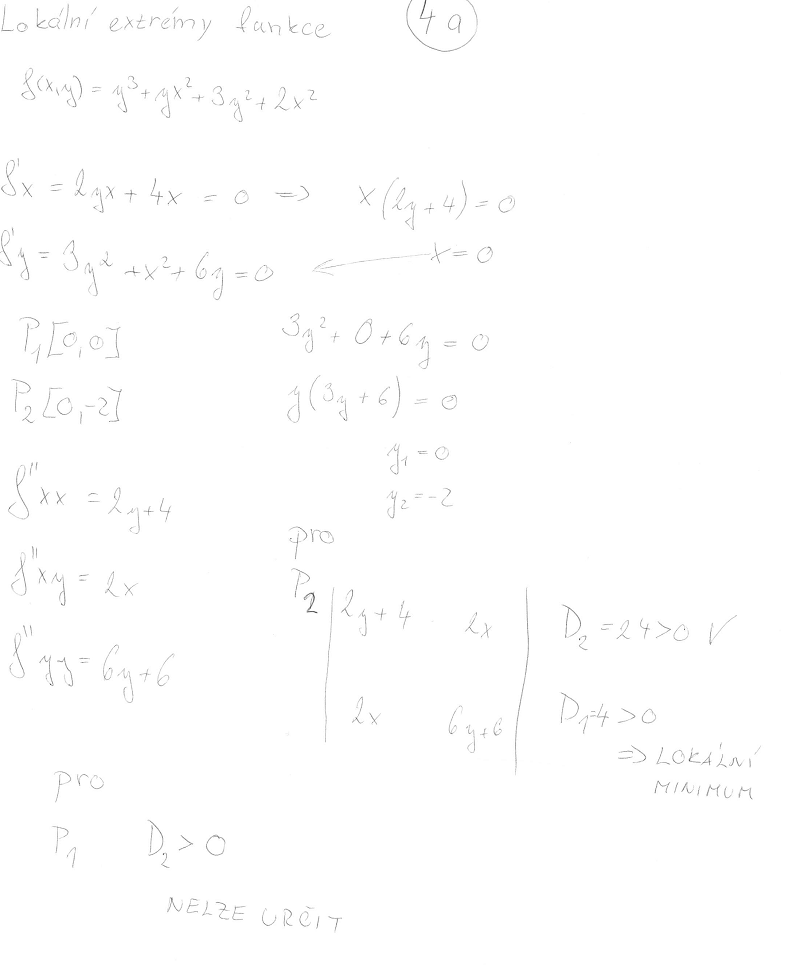 Lokální extrémy funkce 4a
f(x,y) = y³ + yx² + 3y² + 2x²
f'x = 2yx + 4x = 0 => x(2y+4) = 0
f'y = 3y² + x² + 6y = 0 ← x = 0
P₁[0,0] 3y² + 0 + 6y = 0
P₂[0,-2] y(3y+6) = 0
y₁ = 0
y₂ = -2
f''xx = 2y+4
pro
f''xy = 2x
P₂ | 2y+4 2x | D₂ = 24 > 0 √
f''yy = 6y+6
| 2x 6y+6 | D₁=4 > 0
=> LOKÁLNÍ
MINIMUM
pro
P₁ D₂ > 0
NELZE URČIT